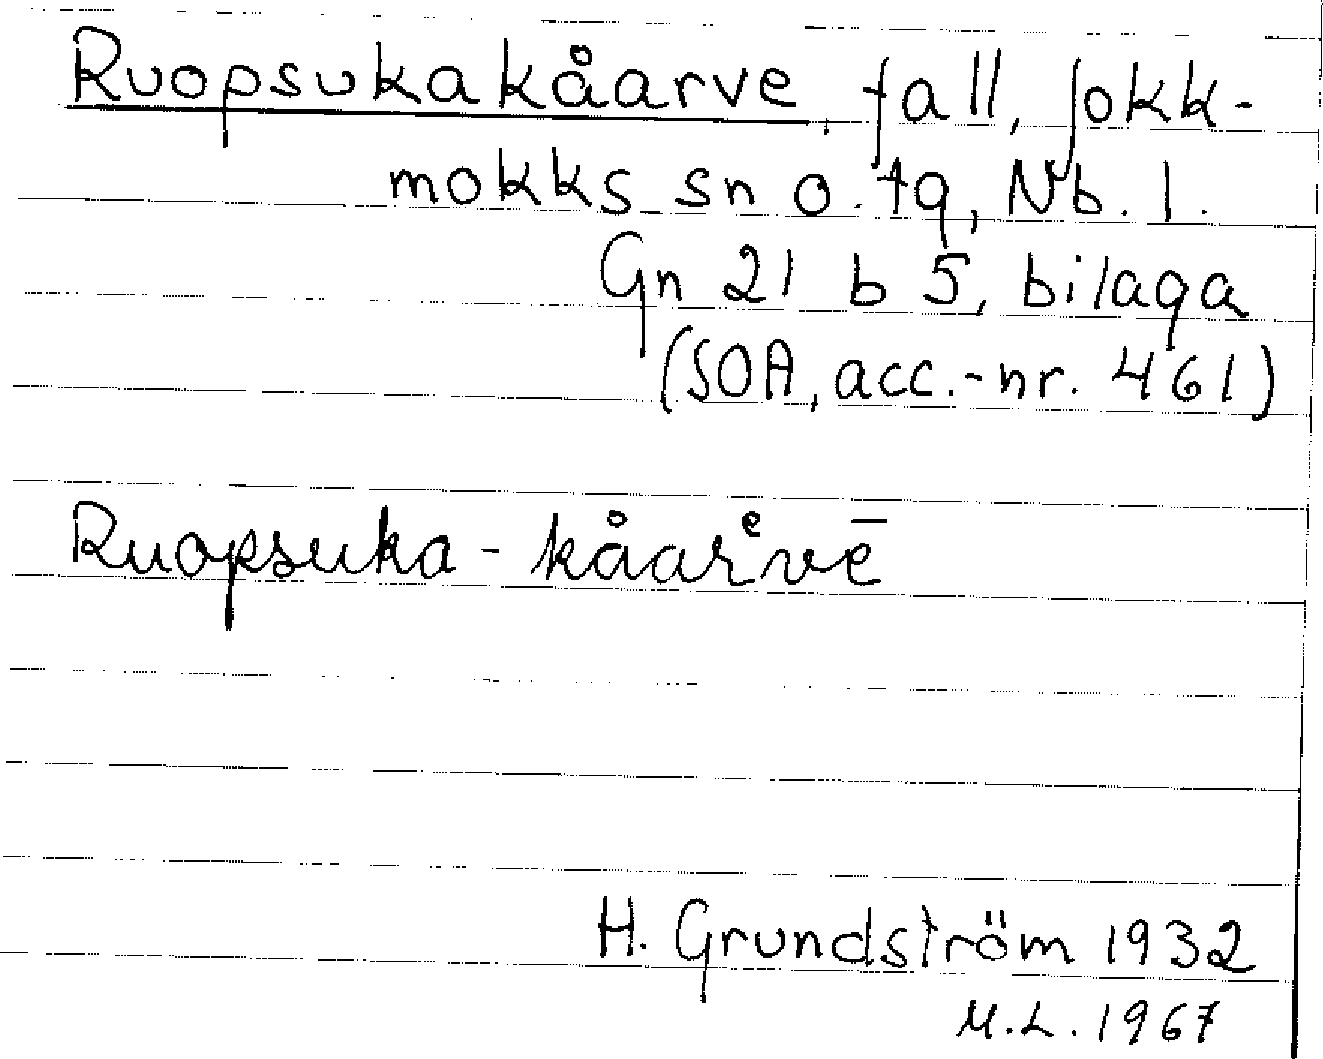 Ruopsukakåarve, fall, Jokk-
mokks sn o. tg, Nb. l.
Gn 21 b 5, bilaga
(SOA, acc.-nr. 461)
Ruopsuka-kåarᵉvē
H. Grundström 1932
M.L. 1967